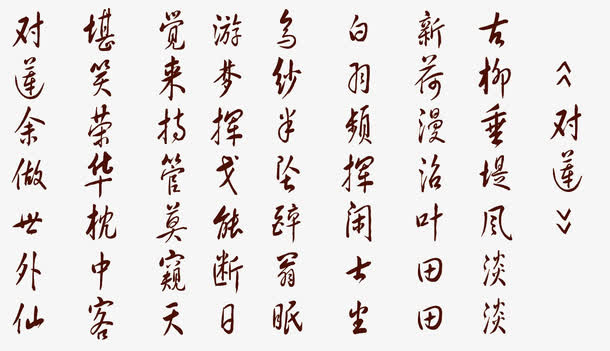 《对莲》
古柳垂堤风淡淡
新荷漫沼叶田田
白羽频挥闲士坐
乌纱半坠醉翁眠
游梦挥戈能断日
觉来持管莫窥天
堪笑荣华枕中客
对莲余做世外仙